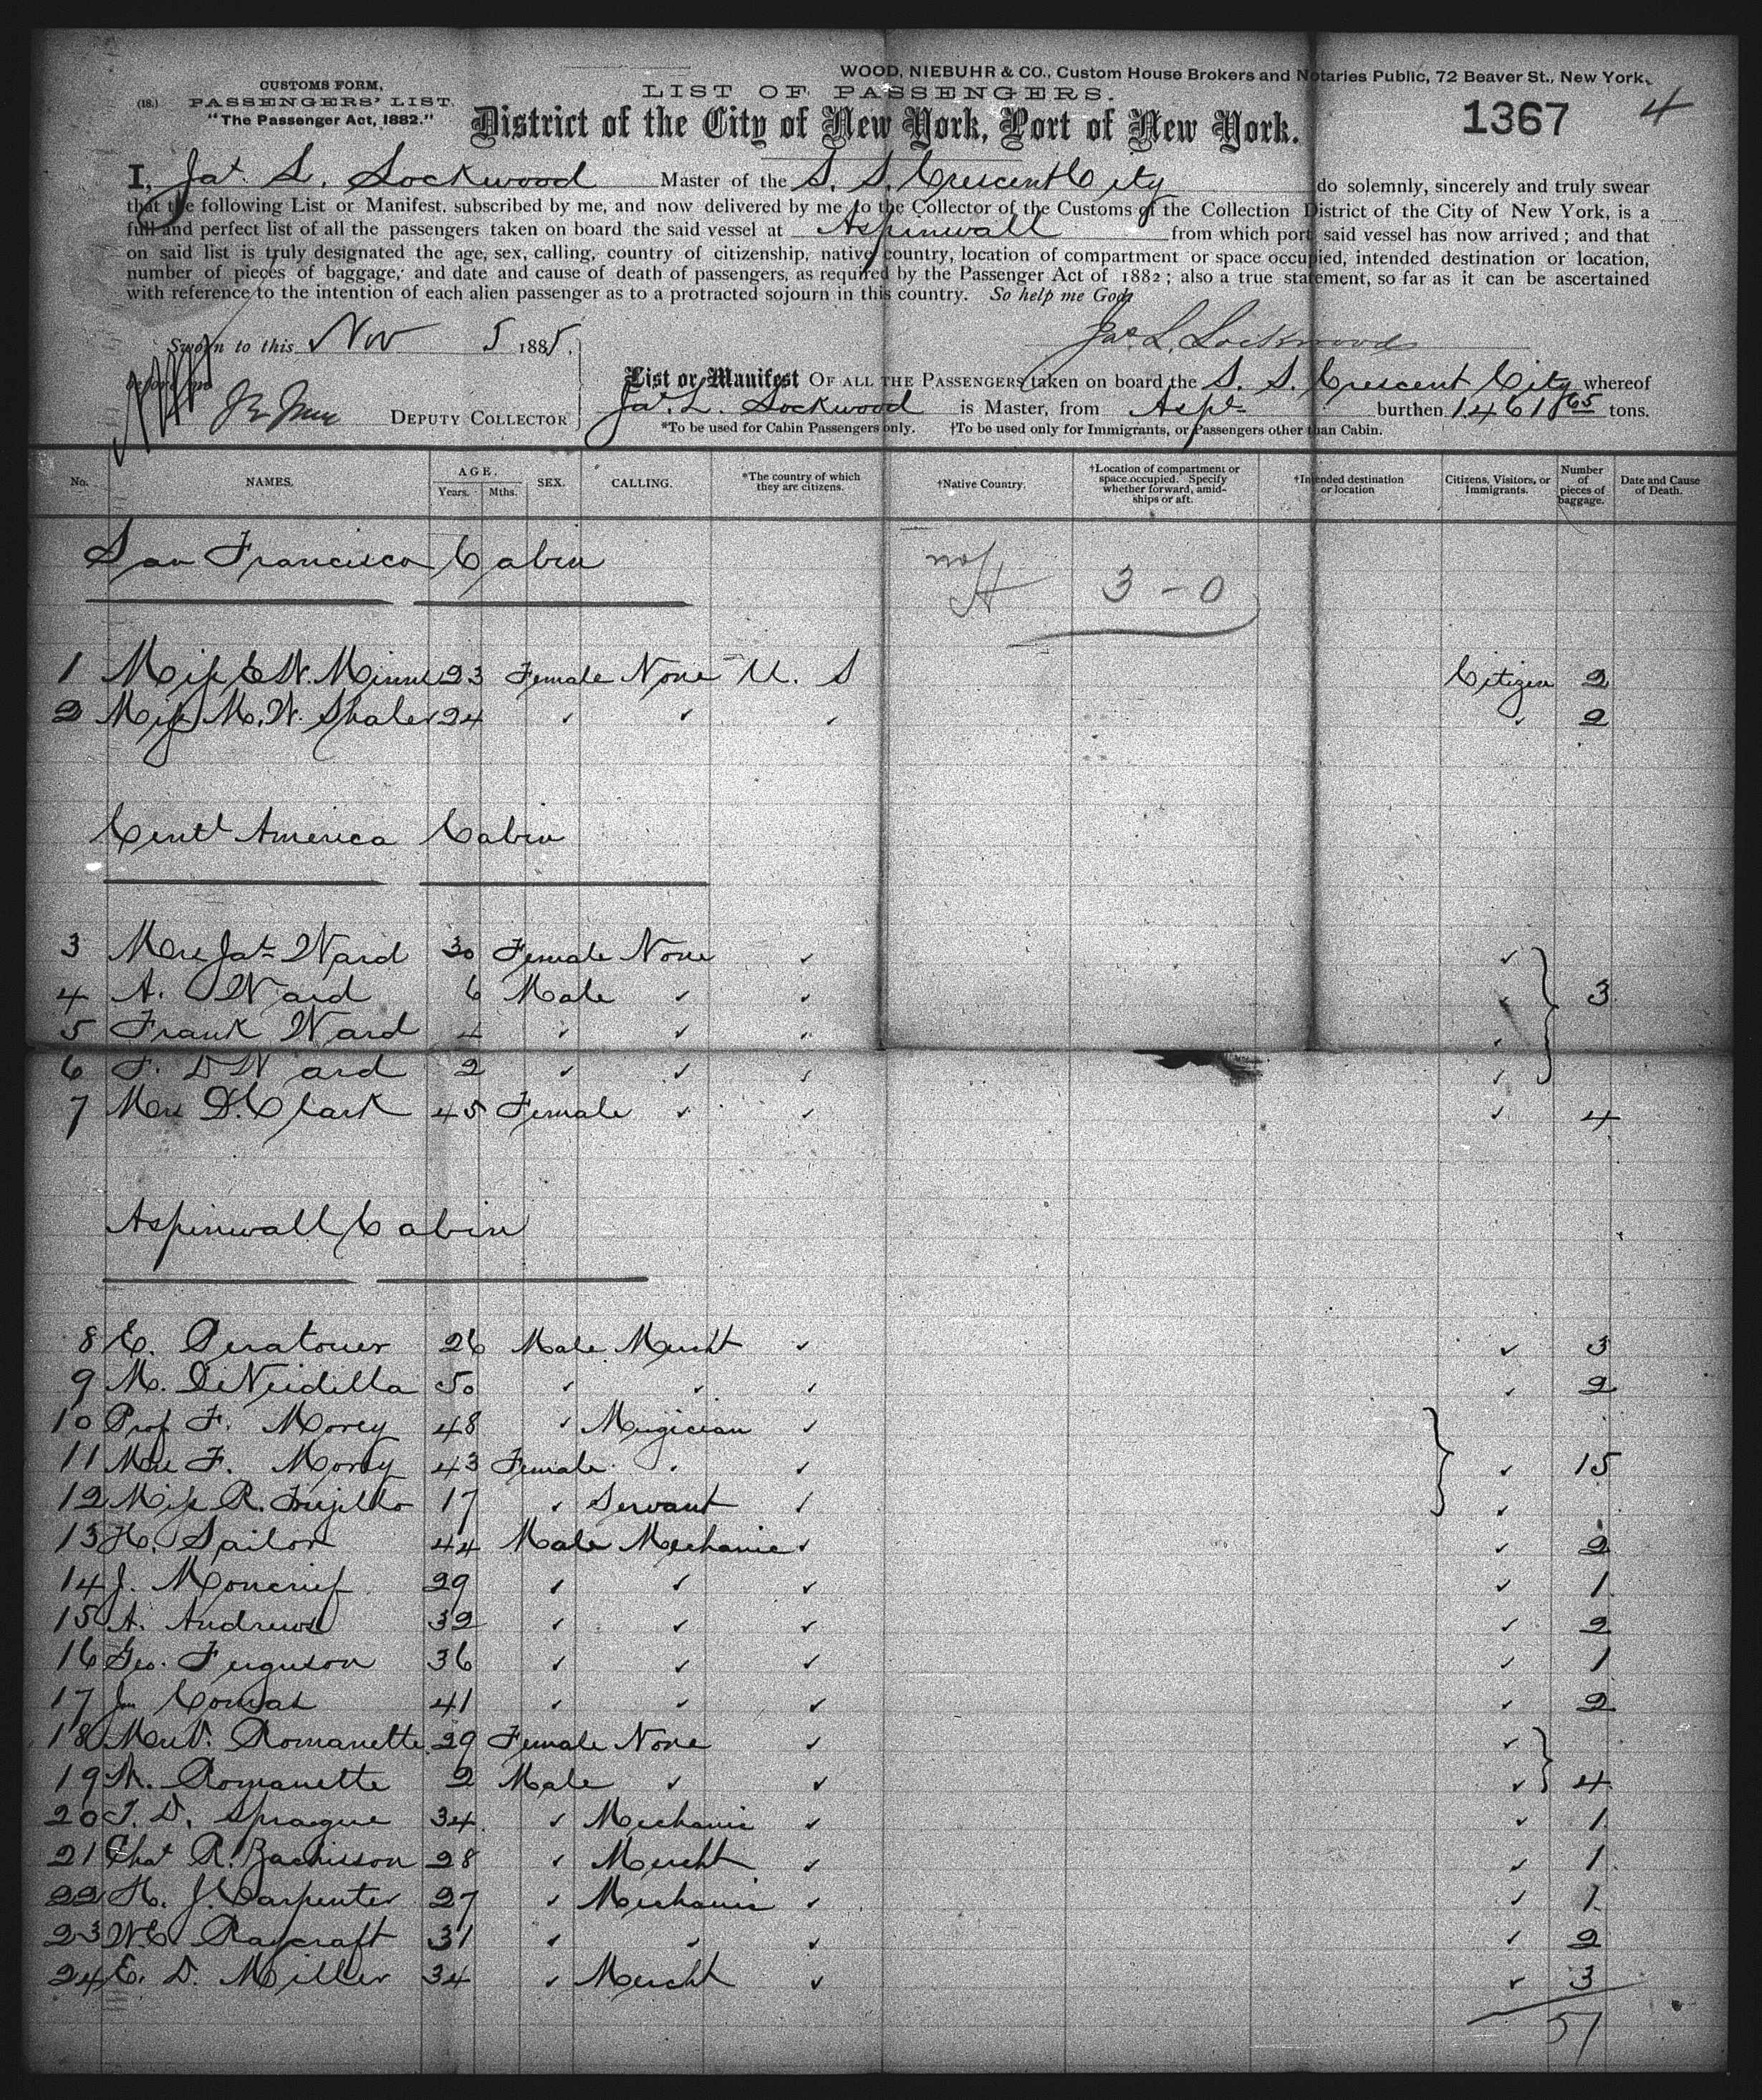 WOOD, NIEBUHR & CO., Custom House Brokers and Notaries Public, 72 Beaver St., New York.
CUSTOMS FORM,
(18.) PASSENGERS' LIST.
"The Passenger Act, 1882."
LIST OF PASSENGERS.
District of the City of New York, Port of New York.
1367 4
I, Jas. L. Lockwood Master of the S. S. Crescent City do solemnly, sincerely and truly swear
that the following List or Manifest, subscribed by me, and now delivered by me to the Collector of the Customs of the Collection District of the City of New York, is a
full and perfect list of all the passengers taken on board the said vessel at Aspinwall from which port said vessel has now arrived; and that
on said list is truly designated the age, sex, calling, country of citizenship, native country, location of compartment or space occupied, intended destination or location,
number of pieces of baggage, and date and cause of death of passengers, as required by the Passenger Act of 1882; also a true statement, so far as it can be ascertained
with reference to the intention of each alien passenger as to a protracted sojourn in this country. So help me God.
Jas. L. Lockwood
Sworn to this Nov 5 1885.
before me
DEPUTY COLLECTOR
List or Manifest OF ALL THE PASSENGERS taken on board the S. S. Crescent City whereof
Jas. L. Lockwood is Master, from Aspl burthen 1461 65 tons.
*To be used for Cabin Passengers only. †To be used only for Immigrants, or Passengers other than Cabin.
No. NAMES. AGE. Years. Mths. SEX. CALLING. *The country of which they are citizens. †Native Country. †Location of compartment or space occupied. Specify whether forward, amidships or aft. †Intended destination or location Citizens, Visitors, or Immigrants. Number of pieces of baggage. Date and Cause of Death.
San Francisco Cabin
3 - 0
1 Miss E. W. 23 Female None U. S Citizen 2
2 Miss M. W. Shaler 24 ✓ ✓ ✓ ✓ 2
Centl America Cabin
3 Mrs Jas Ward 30 Female None ✓ ✓
4 A. Ward 6 Male ✓ ✓ ✓ 3
5 Frank Ward 4 ✓ ✓ ✓ ✓
6 F. D Ward 2 ✓ ✓ ✓ ✓
7 Mrs D. Clark 45 Female ✓ ✓ ✓ 4
Aspinwall Cabin
8 E. Peratoner 26 Male Mercht ✓ ✓ 3
9 M. 50 ✓ ✓ ✓ ✓ 2
10 Prof F. Morey 48 ✓ Mugician ✓
11 Mrs F. Morey 43 Female ✓ ✓ 15
12 Miss R. Trujillo 17 ✓ Servant ✓ ✓
13 H. Sailor 44 Male Mechanic ✓ ✓ 2
14 J. Moncrief 29 ✓ ✓ ✓ ✓ 1
15 A. Andrews 32 ✓ ✓ ✓ ✓ 2
16 Geo. Ferguson 36 ✓ ✓ ✓ ✓ 1
17 Jn 41 ✓ ✓ ✓ ✓ 2
18 Mrs V. Romanette 29 Female None ✓ ✓
19 A. Romanette 2 Male ✓ ✓ ✓ 4
20 T. D. Sprague 34 ✓ Mechanic ✓ ✓ 1
21 Chas R. Zachrisson 28 ✓ Mercht ✓ ✓ 1
22 H. J. Carpenter 27 ✓ Mechanic ✓ ✓ 1
23 W. E. Raycraft 31 ✓ ✓ ✓ ✓ 2
24 E. D. Miller 34 ✓ Mercht ✓ ✓ 3
51